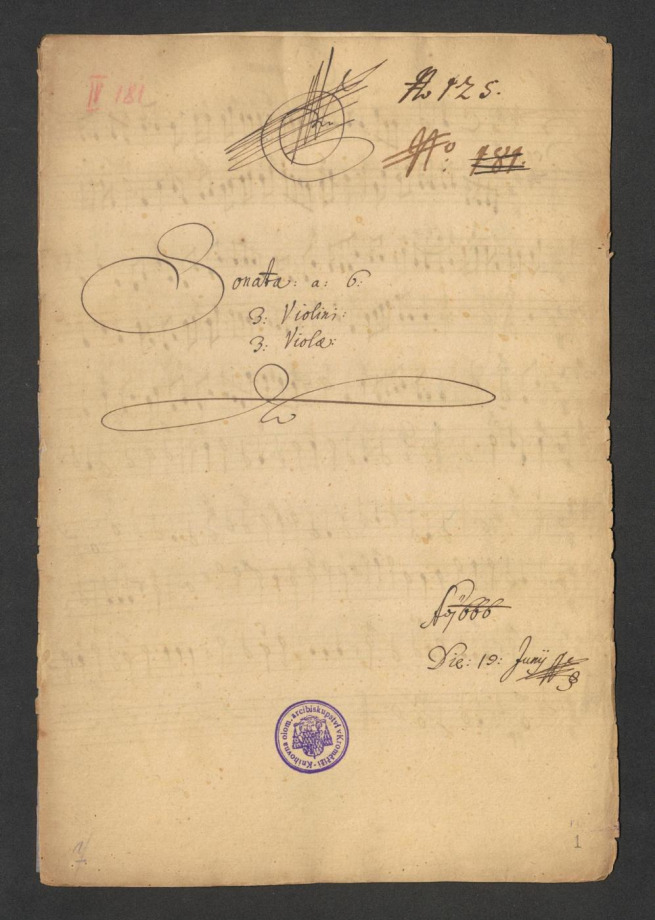 IV 181
No 125.
No: 181.
Sonata: a: 6:
3: Violini:
3: Violæ:
Ao 1666
Die: 19: Junÿ
Knihovna olom. arcibiskupství v Kroměříži
1